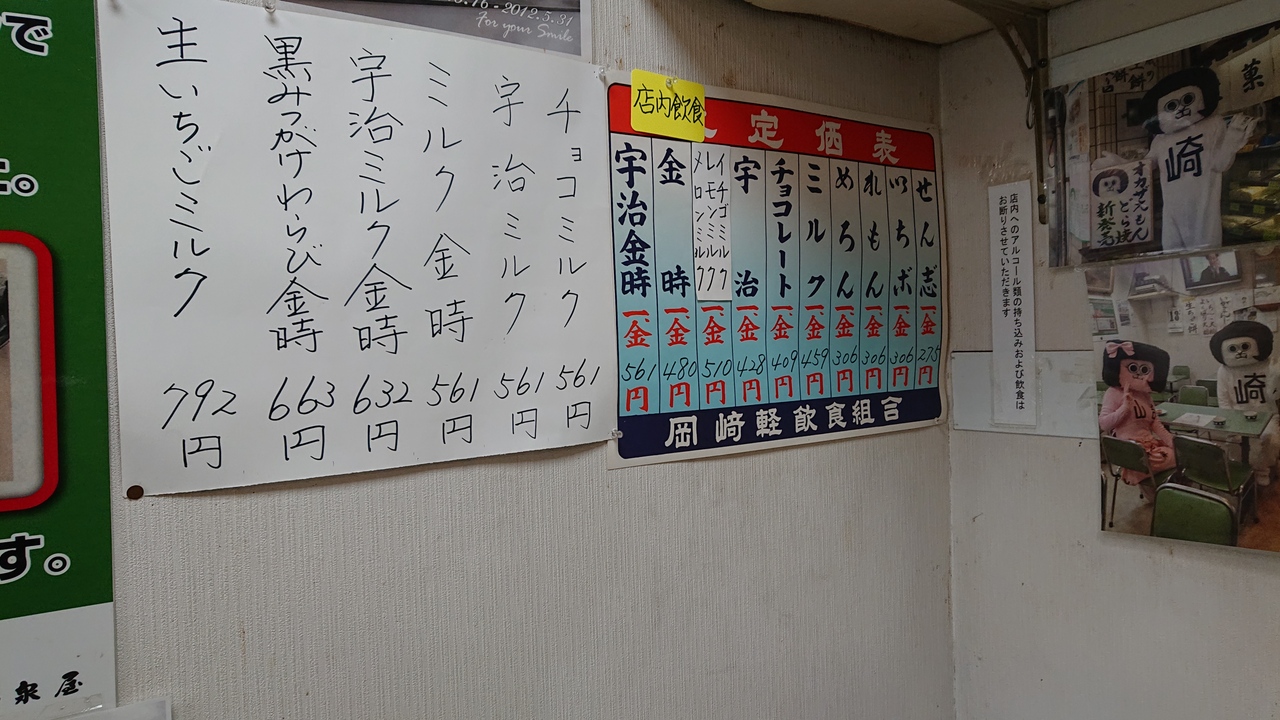 で
た。
す。
泉屋
16-2012.5.31
For your Smile
チョコミルク 561円
宇治ミルク 561円
ミルク金時 561円
宇治ミルク金時 632円
黒みつがけわらび金時 663円
生いちごミルク 792円
店内飲食
定価表
せん志 一金 275円
いちボ 一金 306円
れもん 一金 306円
めろん 一金 306円
ミルク 一金 459円
チョコレート 一金 409円
宇治 一金 428円
イチゴミルク
レモンミルク
メロンミルク
一金 510円
金時 一金 480円
宇治金時 一金 561円
岡崎軽飲食組合
店内へのアルコール類の持ち込みおよび飲食は
お断りさせていただきます
菓
崎
オカザえもん
どら焼
新発売
崎